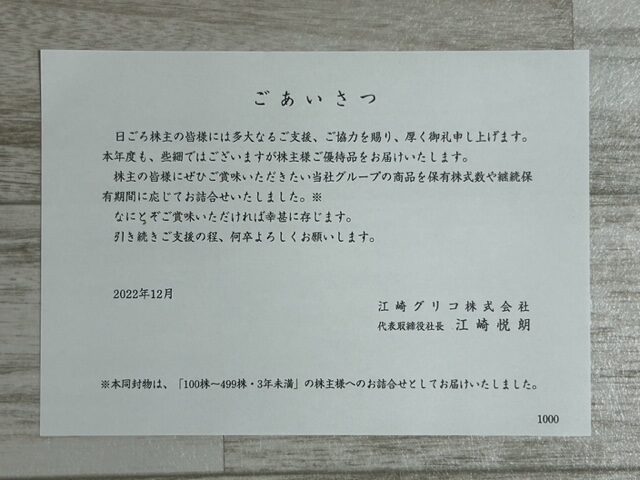 ごあいさつ
日ごろ株主の皆様には多大なるご支援、ご協力を賜り、厚く御礼申し上げます。
本年度も、些細ではございますが株主様ご優待品をお届けいたします。
株主の皆様にぜひご賞味いただきたい当社グループの商品を保有株式数や継続保
有期間に応じてお詰合せいたしました。※
なにとぞご賞味いただければ幸甚に存じます。
引き続きご支援の程、何卒よろしくお願いします。
2022年12月
江崎グリコ株式会社
代表取締役社長 江崎悦朗
※本同封物は、「100株～499株・3年未満」の株主様へのお詰合せとしてお届けいたしました。
1000